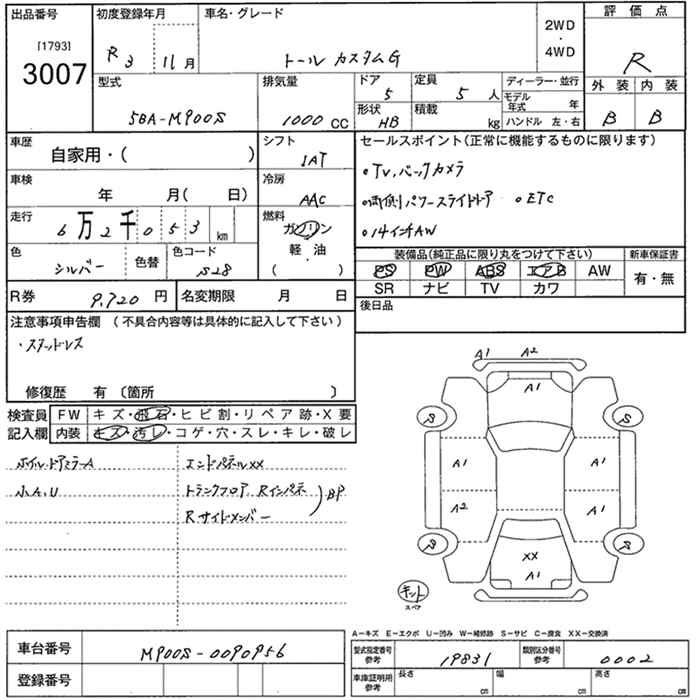 出品番号 初度登録年月 車名・グレード 2WD・4WD 評価点
[1793]
3007 R3 11月 トール カスタムG R
型式 排気量 ドア 5 定員 5人 ディーラー・並行 外装 内装
5BA-M900S 1000 CC 形状 HB 積載 kg モデル年式 年 B B
ハンドル 左・右
車歴 自家用・( ) シフト IAT セールスポイント(正常に機能するものに限ります)
車検 年 月( 日) 冷房 AAC ・TV,バックカメラ
走行 6万2千053 km 燃料 ガソリン・軽油 ( ) ・両側パワースライドドア ・ETC
・14インチAW
色 シルバー 色替 色コード S28 装備品(純正品に限り丸をつけて下さい) 新車保証書
PS PW ABS エアB AW 有・無
SR ナビ TV カワ
R券 9,720 円 名変期限 月 日 後日品
注意事項申告欄 (不具合内容等は具体的に記入して下さい)
・スタッドレス
修復歴 有 〔箇所 〕
検査員 FW キズ・飛石・ヒビ割・リペア跡・X要
記入欄 内装 キズ・汚レ・コゲ・穴・スレ・キレ・破レ
ホイルドアミラーA エンドパネルXX
小A,U トランクフロア、Rインパネ
Rサイドメンバー )BP
A1 A2
A1
S S
A1 A1
A2 A1
S S
XX
A1
キット
スペア
A-キズ E-エクボ U-凹み W-補修跡 S-サビ C-腐食 XX-交換済
車台番号 M900S-0090956 型式指定番号 参考 19831 類別区分番号 参考 0002
登録番号 車庫証明用 参考 長さ cm 幅 cm 高さ cm